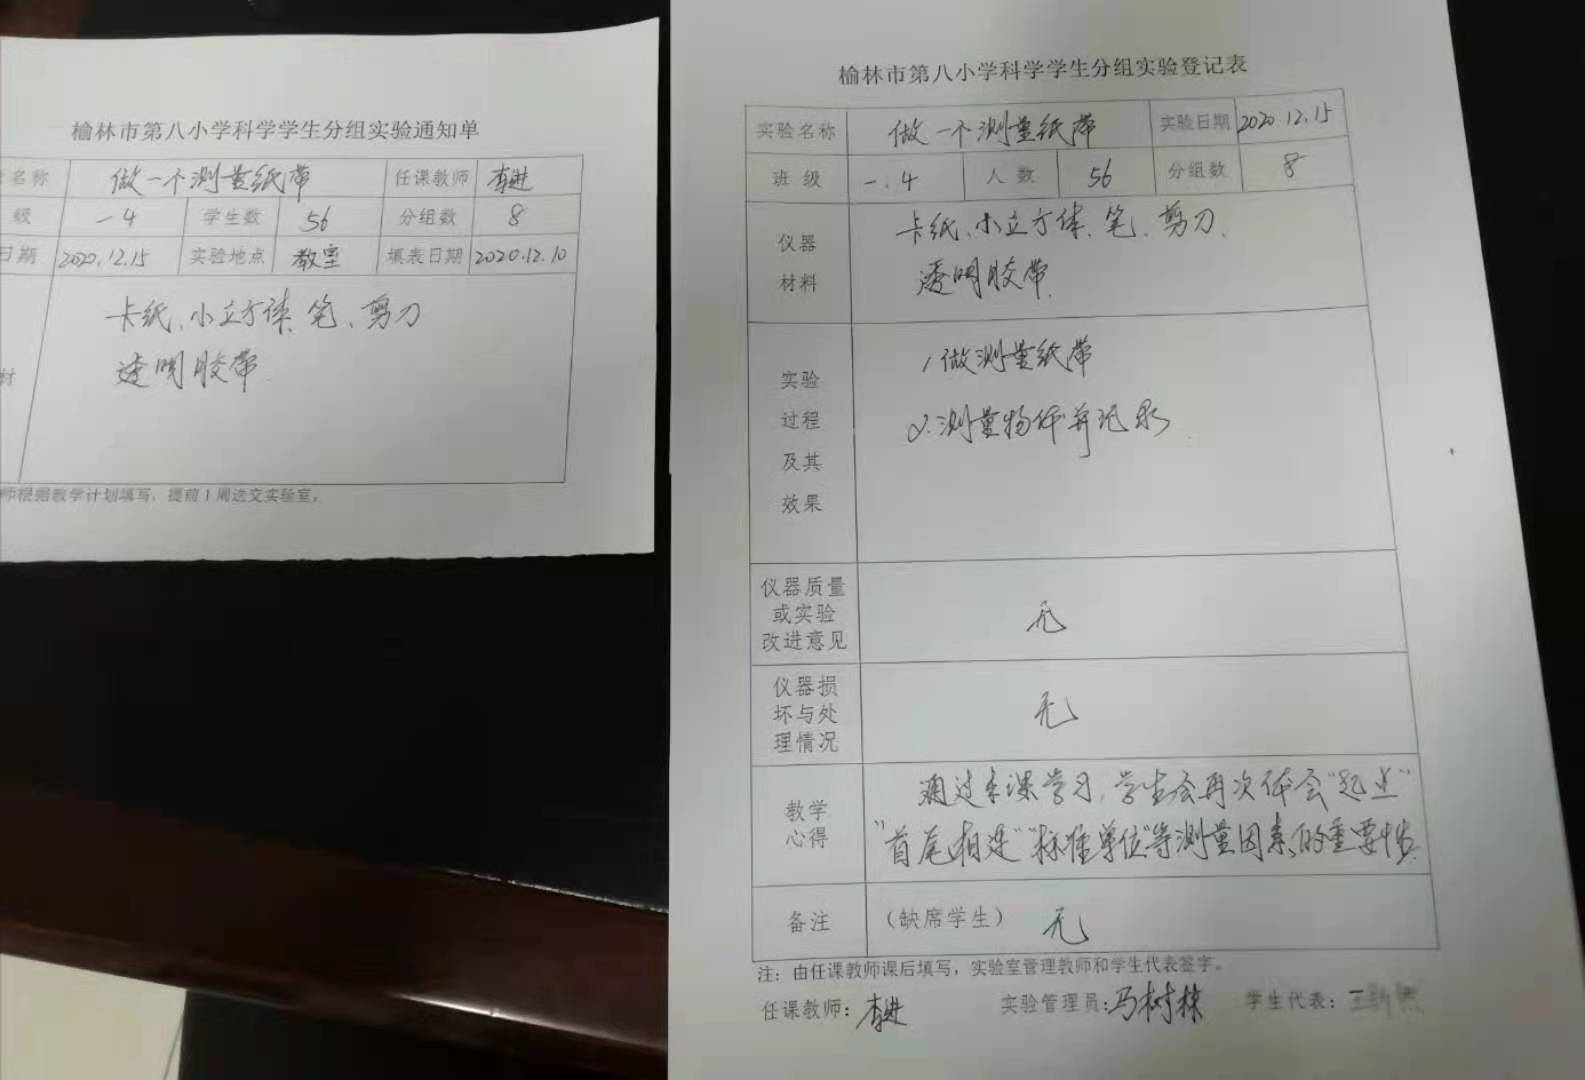 榆林市第八小学科学学生分组实验通知单
名称 做一个测量纸带 任课教师 李进
级 一4 学生数 56 分组数 8
日期 2020.12.15 实验地点 教室 填表日期 2020.12.10
卡纸、小立方体、笔、剪刀
透明胶带
材
师根据教学计划填写，提前1周送交实验室。
榆林市第八小学科学学生分组实验登记表
实验名称 做一个测量纸带 实验日期 2020.12.15
班 级 一.4 人 数 56 分组数 8
仪器 卡纸、小立方体、笔、剪刀、
材料 透明胶带
1.做测量纸带
实验
过程 2.测量物体并记录
及其
效果
仪器质量
或实验 无
改进意见
仪器损
坏与处 无
理情况
通过本课学习，学生会再次体会“起止”
教学
心得 “首尾相连”“标准单位”等测量因素的重要性
备注 （缺席学生） 无
注：由任课教师课后填写，实验室管理教师和学生代表签字。
任课教师：李进 实验管理员：马树林 学生代表：王